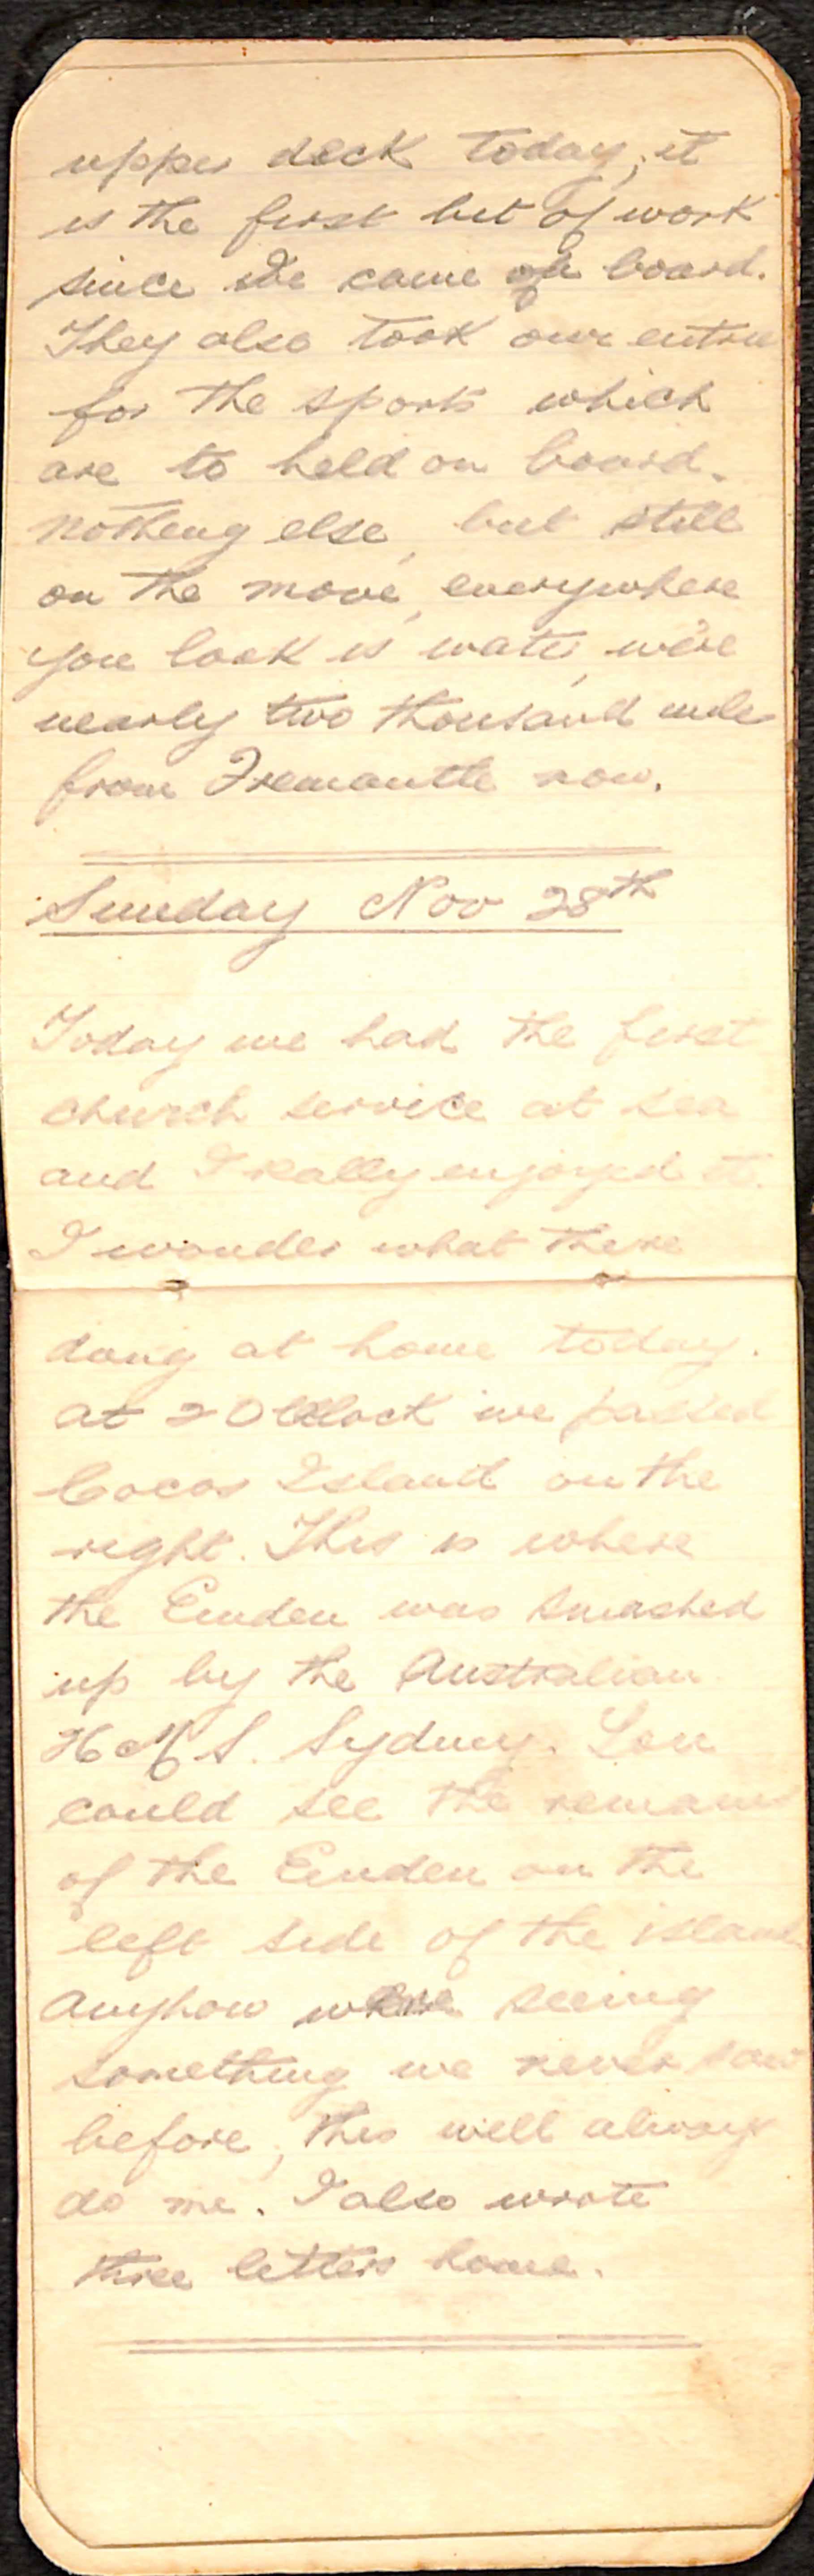 upper deck today, it
is the first bit of work
since we came on board.
They also took our entries
for the sports which
are to held on board.
Nothing else, but still
on the move, everywhere
you look is water, we're
nearly two thousand mile
from Fremantle now.
Sunday Nov 28th
Today we had the first
church service at sea
and I really enjoyed it.
I wonder what there
doing at home today.
at 2 O'Clock we passed
Cocos Island on the
right. This is where
the Emden was smashed
up by the Australian
H M S. Sydney. You
could see the remains
of the Emden on the
left side of the island
Anyhow were seeing
something we never saw
before, this will always
do me. I also wrote
three letters home.